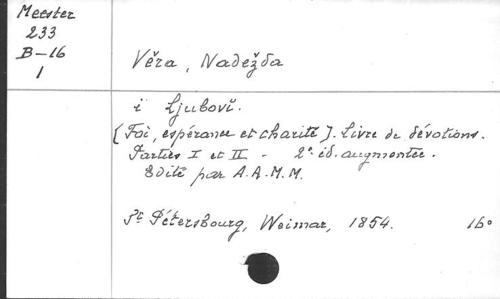 Meester
233
B-16
1
Věra, Nadežda
i Ljubovĭ.
[Foi, espérance et charité]. Livre de dévotions.
Parties I et II - 2e éd. augmentée.
Edité par A.A.M.M.
St Pétersbourg, Weimar, 1854. 16°